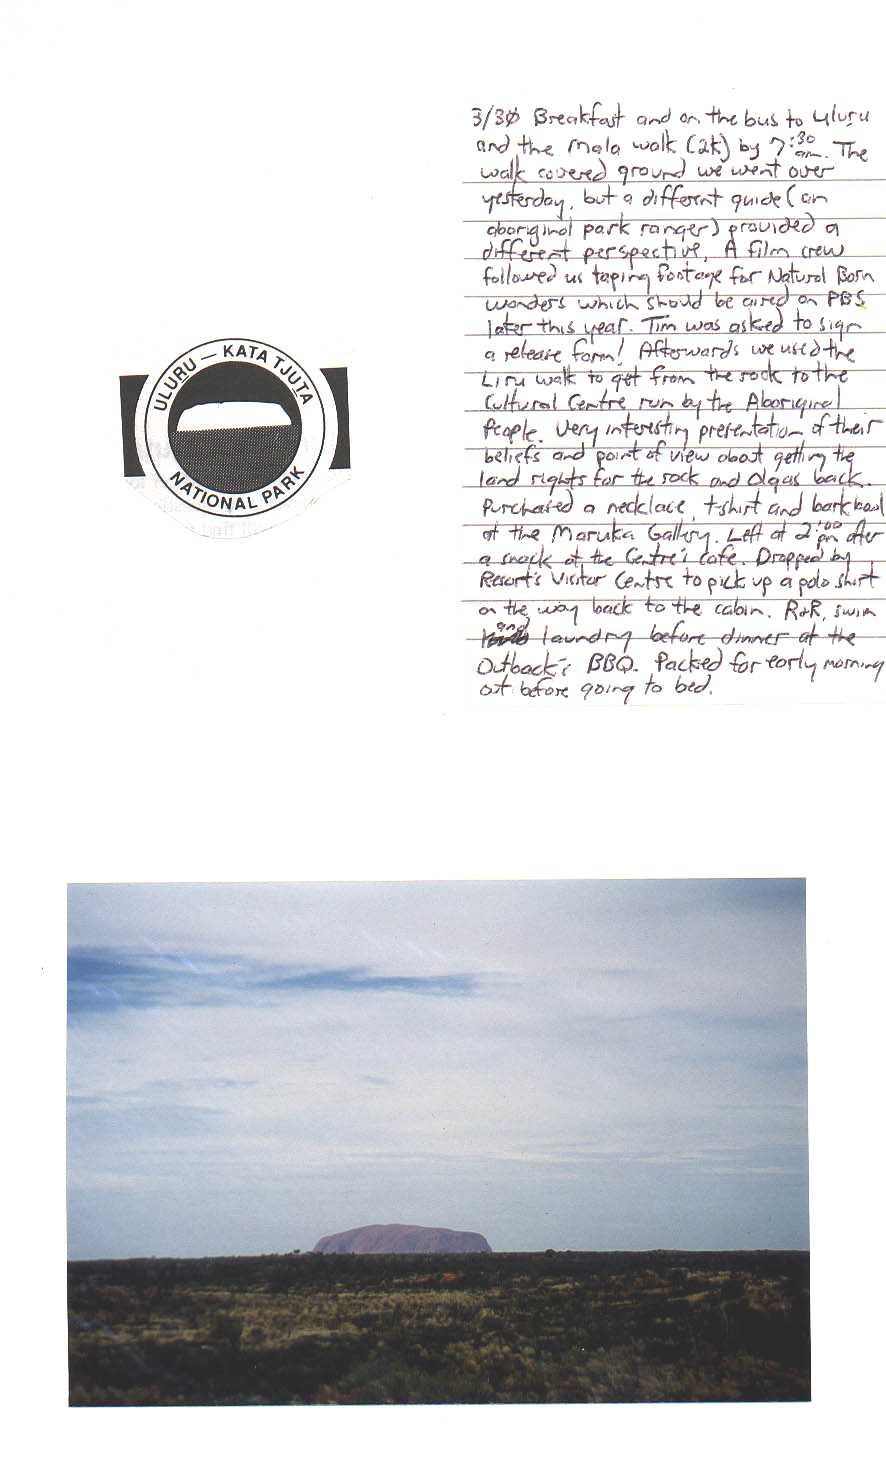 ULURU — KATA TJUTA
NATIONAL PARK
3/30 Breakfast and on the bus to Uluru
and the Mala walk (2k) by 7:30 am. The
walk covered ground we went over
yesterday, but a different guide (an
aboriginal park ranger) provided a
different perspective. A film crew
followed us taping footage for Natural Born
Wonders which should be aired on PBS
later this year. Tim was asked to sign
a release form! Afterwards we used the
Liru walk to get from the rock to the
Cultural Centre run by the Aboriginal
People. Very interesting presentation of their
beliefs and point of view about getting the
land rights for the rock and Olgas back.
Purchased a necklace, t-shirt and bark bowl
at the Maruka Gallery. Left at 2:00 pm after
a snack at the Centre's cafe. Dropped by
Resort's Visitor Centre to pick up a polo shirt
on the way back to the cabin. R+R, swim
and laundry before dinner at the
Outback's BBQ. Packed for early morning
out before going to bed.